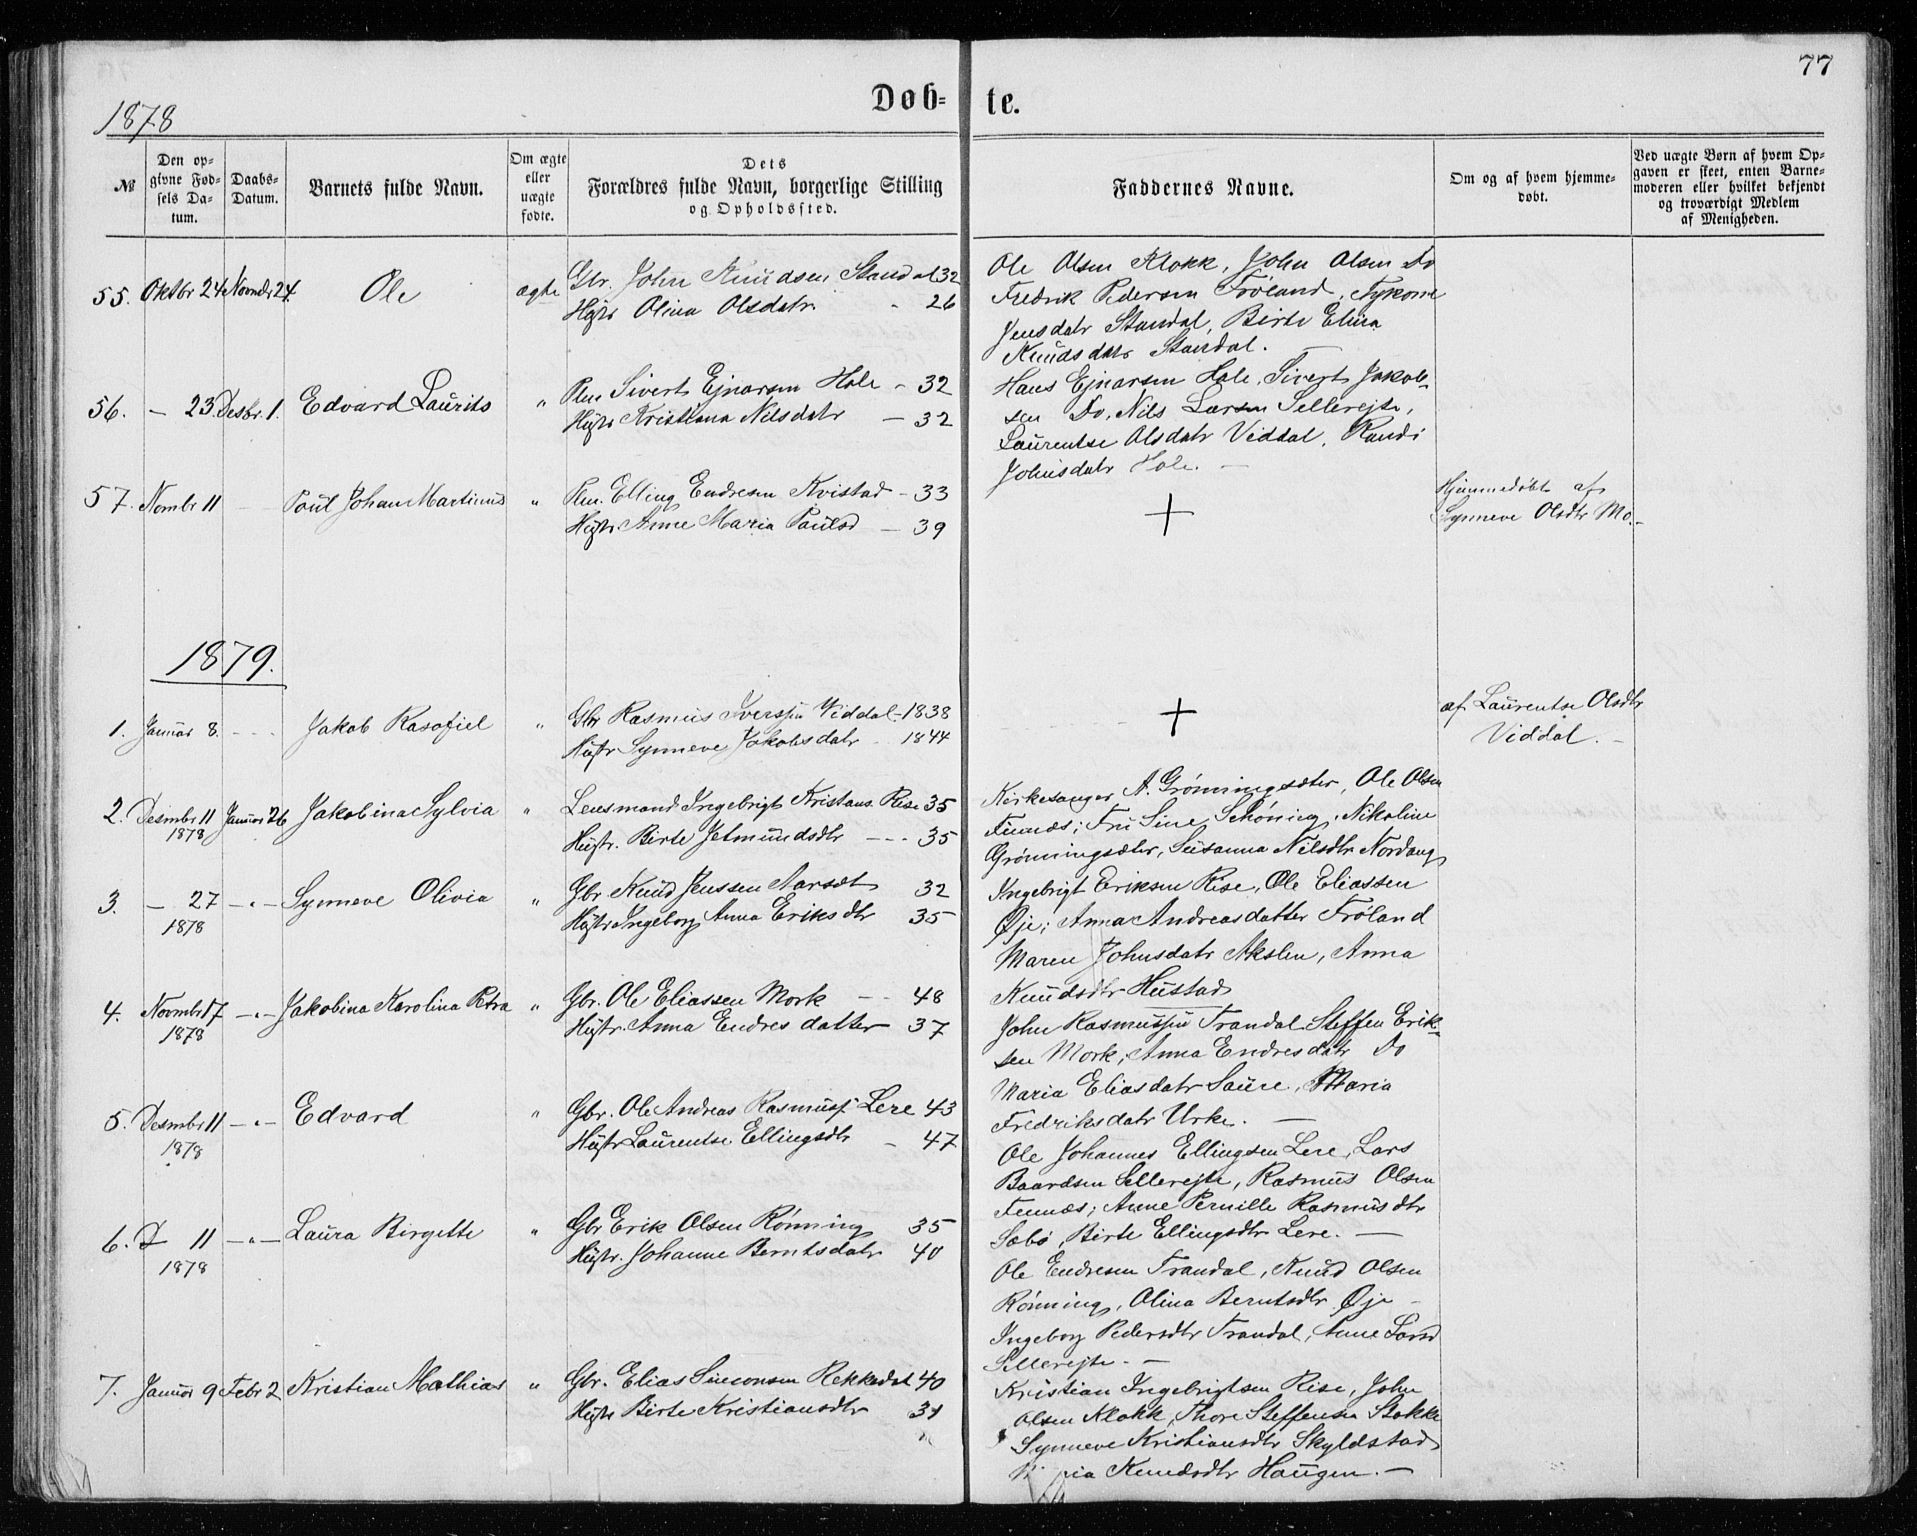 77
Døb-
te.
1878
№
Den op-
givne Fød-
sels Da-
tum.
Daabs-
Datum.
Barnets fulde Navn.
Om ægte
eller
uægte
fødte.
Dets
Forældres fulde Navn, borgerlige Stilling
og Opholdssted.
Faddernes Navne.
Om og af hvem hjemme-
døbt.
Ved uægte Børn af hvem Op-
gaven er skeet, enten Barne-
moderen eller hvilket bekjendt
og troværdigt Medlem
af Menigheden.
55. Oktbr 24 Novmbr 24. Ole ægte Gbr. John Knudsen Standal 32
Hustr Olina Olsdatr. - 26
Ole Olsen Klokk, John Olsen Do
Fredrik Pedersen Frøland,
Jensdatr Standal, Birte Elina
Knudsdatr Standal.
56. - 23. Desbr. 1. Edvard Laurits " Plm Sivert Ejnarsen Hole - 32
Hustr Kristiana Nilsdatr - 32
Hans Ejnarsen Hole, Sivert Jakob-
sen Do, Nils Larsen Sellerejte,
Laurentse Olsdatr Viddal, Randi
Johnsdatr Hole. -
57. Novmbr 11 - Poul Johan Martinus " Plm. Elling Endresen Kvistad - 33
Hustr. Anne Maria Poulsd - 39
+
Hjemmedøbt af
Synneve Olsdtr Mo.-
1879.
1. Januar 8. - - - Jakob Rasofiel " Gbr Rasmus Iverssen Viddal - 1838
Hustr Synneve Jakobsdatr - 1844
+
af Laurentse Olsdtr
Viddal. -
2. Desmbr 11 Januar 26 Jakobina Sylvia " Lensmand Ingebrigt Kristians. Rise 35
1878
Hustr. Birte Jetmundsdtr - - - 35
Kirkesanger A. Grønningsæter, Ole Olsen
Finnæs; Fru Sine Schøning, Nikoline
Grønningsæter, Susanna Nilsdtr Nordang
3. - 27 - " - Synneve Olivia " Gbr Knud Jenssen Aarsæt 32
1878
Hustr Ingeborg Anna Eriksdtr 35
Ingebrigt Eriksen Rise, Ole Eliassen
Øje; Anna Andreasdatter Frøland
Maren Johnsdatr Akslen, Anna
Knudsdtr Hustad
4. Novmbr 17 - " - Jakobina Karolina Petra " Gbr. Ole Eliassen Mork - - 48
1878
Hustr. Anna Endresdatter 37
John Rasmussen Trandal Steffen Erik-
sen Mork, Anna Endresdatr Do
Maria Eliasdatr Saure, Maria
Fredriksdatr Urke. -
5. Desmbr 11 - " - Edvard " Gbr. Ole Andreas Rasmuss. Lere 43
1878
Hustr Laurentse Ellingsdtr - 47
Ole Johannes Ellingsen Lere, Lars
Baardsen Sellerejte, Rasmus Olsen
Finnæs; Anne Pernille Rasmusdtr
Sæbø, Birte Ellingsdtr Lere. -
6. D 11 - " - Laura Birgitte " Gbr Erik Olsen Rønning 35
1878
Hustr. Johanne Berntsdatr 40
Ole Endresen Trandal, Knud Olsen
Rønning, Olina Berntsdtr Øje -
Ingeborg Pedersdtr Trandal, Anne Larsd
Sellerejte. -
7. Januar 9 Febr 2 Kristian Mathias " Gbr. Elias Simonsen Rekkedal 40
Hustr Birte Kristiansdtr 31
Kristian Ingebrigtsen Rise, John
Olsen Klokk, Thore Steffensen Stokke
Synneve Kristiansdtr Skyldstad
Knudsdtr Haugen. -